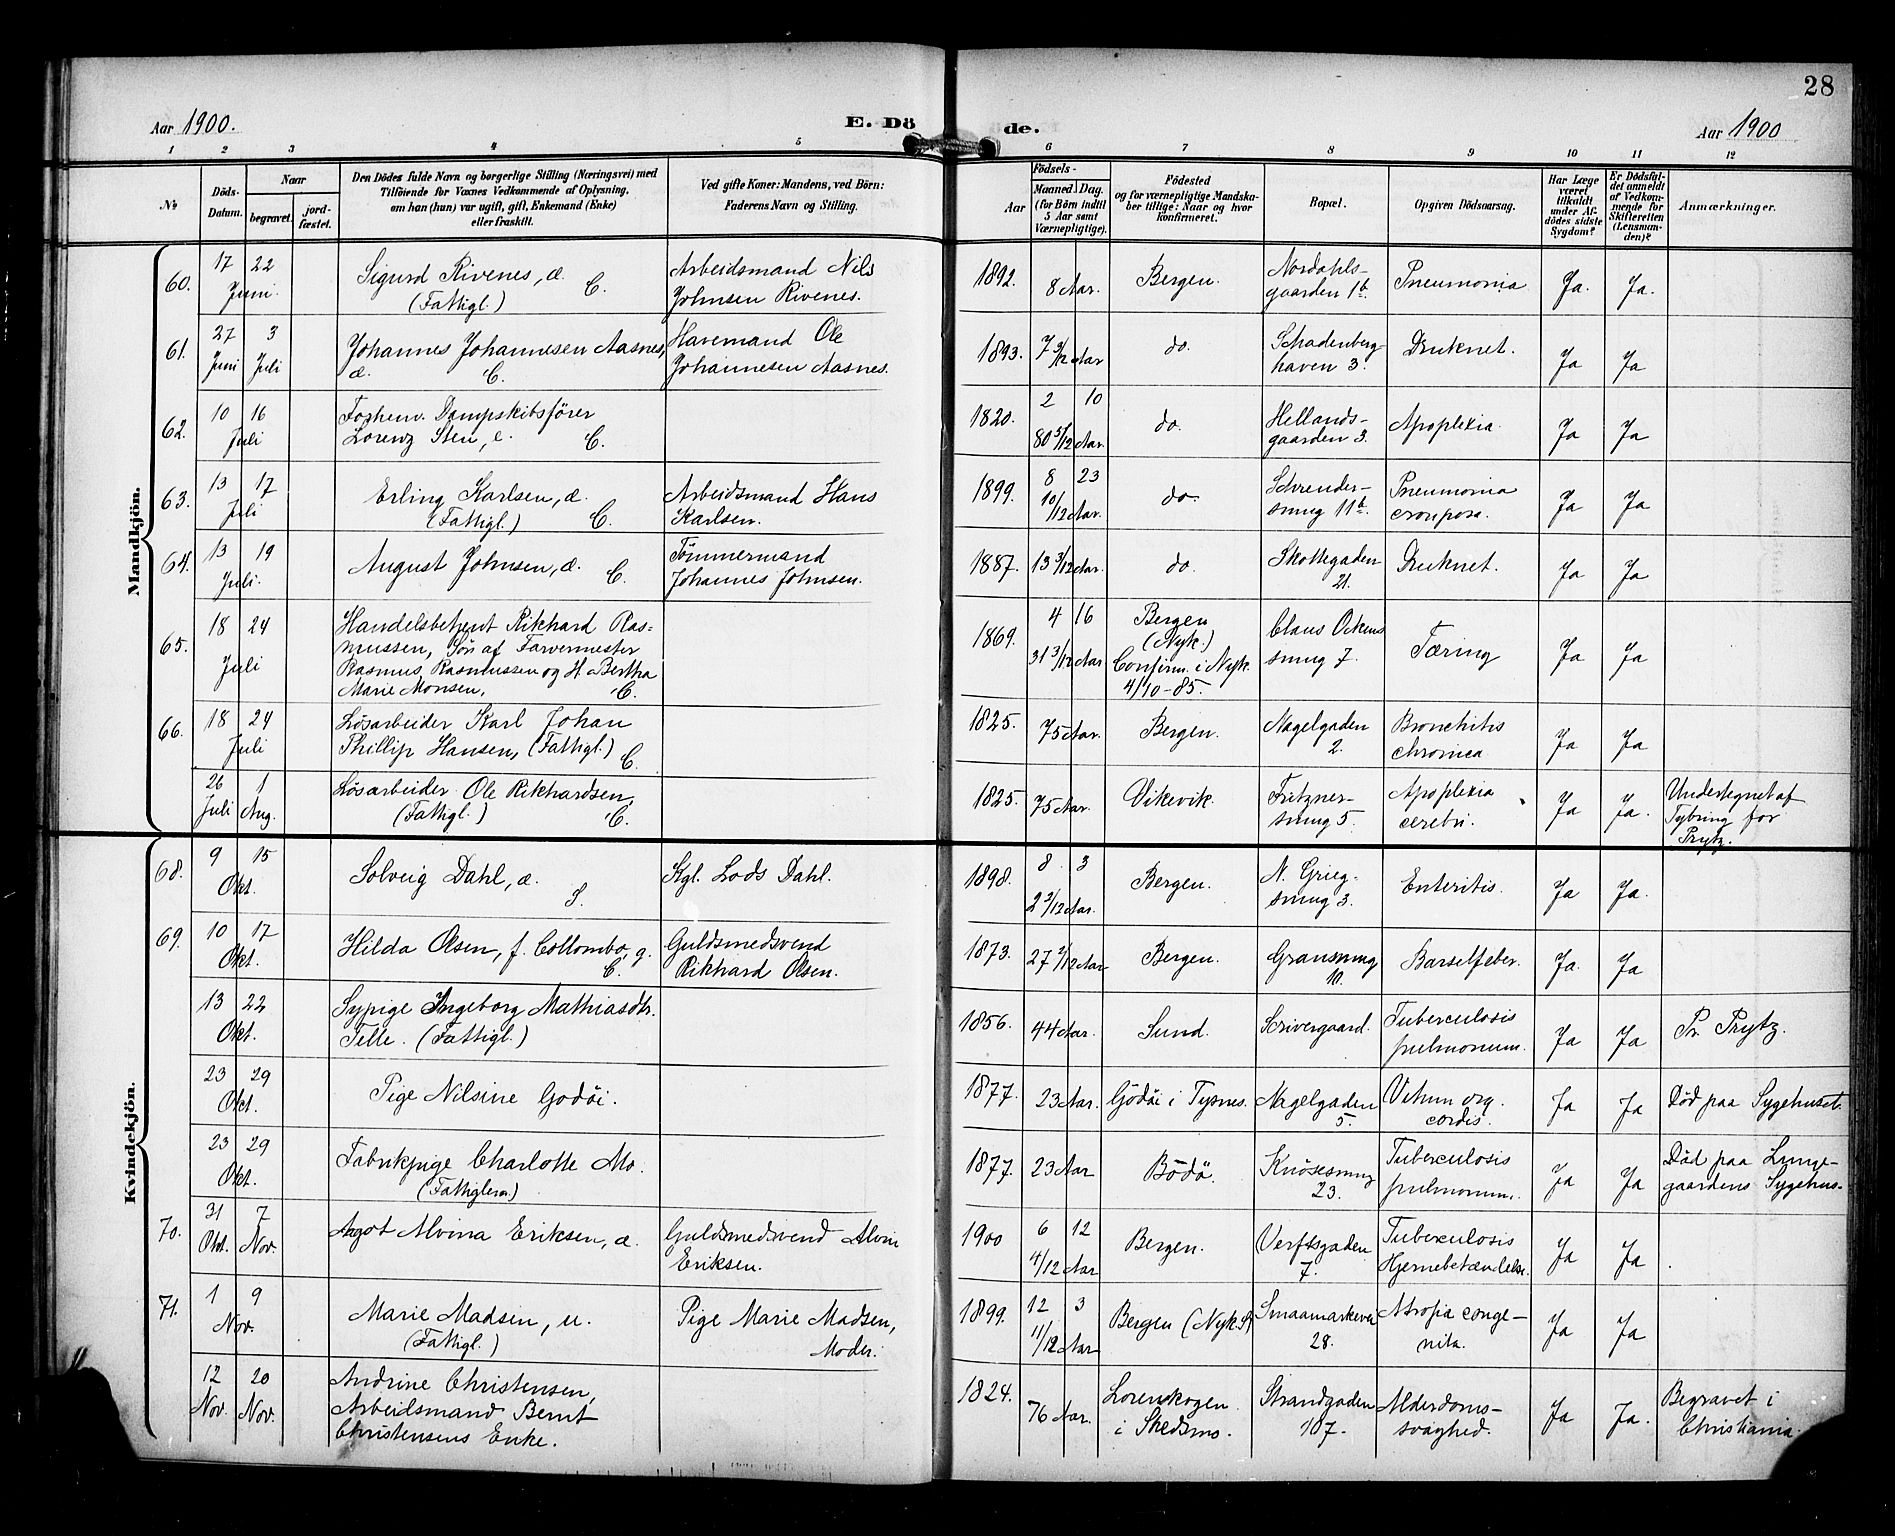 28
Aar 1900.
E. Döde.
Aar 1900
1 2 3 4 5 6 7 8 9 10 11 12
No
Döds-Datum.
Naar
begravet.
jord-fæstet.
Den Dödes fulde Navn og borgerlige Stilling (Næringsvei) med
Tilföiende for Voxnes Vedkommende af Oplysning,
om han (hun) var ugift, gift, Enkemand (Enke)
eller fraskilt.
Ved gifte Koner: Mandens, ved Börn:
Faderens Navn og Stilling.
Födsels-
Aar
Maaned Dag.
(for Börn indtil
5 Aar samt
Værnepligtige).
Födested
og for værnepligtige Mandska-
ber tillige: Naar og hvor
konfirmeret.
Bopæl.
Opgiven Dödsaarsag.
Har Læge
været
tilkaldt
under Af-
dödes sidste
Sygdom?
Er Dödsfal-
det anmeldt
af Vedkom-
mende for
Skifteretten
(Lensman-
den)?
Anmærkninger.
Mandkjön.
60. 17 22 Juni. Sigurd Rivenes, æ. (Fattigl.) C. Arbeidsmand Nils Johnsen Rivenes. 1892. 8 Aar. Bergen. Nordahls-gaarden 1b. Pneumonia Ja. Ja.
61. 27 Juni 3 Juli Johannes Johannesen Aasnes, æ. C. Havemand Ole Johannesen Aasnes. 1893. 7 3/12 Aar do. Schadenberg-haven 3. Druknet. Ja Ja
62. 10 16 Juli Forhenv. Dampskibsförer Lorenz Sten, e. C. 1820. 2 10 80 5/12 Aar. do. Hellands-gaarden 3. Apoplexia. Ja Ja
63. 13 17 Juli Erling Karlsen, æ. (Fattigl.) C. Arbeidsmand Hans Karlsen. 1899. 8 23 10/12 Aar. do. smug 11b. Pneumonia crouposa. Ja Ja
64. 13 19 Juli. August Johnsen, æ. C. Tömmermand Johannes Johnsen. 1887. 13 3/12 Aar. do. Skottegaden 21. Druknet. Ja Ja
65. 18 24 Juli Handelsbetjent Rikhard Ras-
mussen, Sön af Farvermester
Rasmus Rasmussen og H. Bertha
Marie Monsen, C. 1869. 4 16 31 3/12 Aar Bergen (Nyk.) Confirm. i Nyk. 4/10-85. Claus Ockens smug 7. Tæring Ja Ja
66. 18 24 Juli Lösarbeider Karl Johan Phillip Hansen, (Fattigl.) C. 1825. 75 Aar. Bergen. Nagelgaden 2. Bronchitis chronica Ja Ja
26 Juli 1 Aug. Lösarbeider Ole Rikhardsen, (Fattigl.) C. 1825. 75 Aar. Vikevik. Fritzner-smug 5. Apoplexia cerebri. Ja Ja. Undertegnet af Tybring for Prytz.
Kvindekjön.
68. 9 15 Okt. Solveig Dahl, æ. S. Kgl. Lods Dahl. 1898. 8 3 2 2/12 Aar. Bergen. N. Grieg-smug 3. Enteritis. Ja Ja.
69. 10 17 Okt. Hilda Olsen, f. Collombo, g. C. Guldsmedsvend Rikhard Olsen. 1873. 27 2/12 Aar Bergen. Gransmug 10. Barselfeber. Ja. Ja
13 22 Okt. Sypige Ingeborg Mathiasdtr. Telle. (Fattigl.) 1856. 44 Aar. Sund. Scrivergaard. Tuberculosis pulmonum. Ja Ja Pr. Prytz.
23 29 Okt. Pige Nilsine Godöi. 1877. 23 Aar. Godöi i Tysnes. Nagelgaden 5. Vitium org. cordis. Ja Ja Död paa Sygehuset.
23 29 Okt. Fabrikpige Charlotte Mo. 1877. 23 Aar Bodö. Knösesmug 23. Tuberculosis pulmonum. Ja Ja Död paa Lunge-gaardens Sygehus.
70. 31 Okt. 7 Nov. Aagot Alvina Eriksen, æ. Guldsmedsvend Alvin Eriksen. 1900 6 12 4/12 Aar Bergen. Verftsgaden 7. Tuberculosis Hjernebetændelse. Ja Ja
71. 1 9 Nov. Marie Madsen, u. (Fattigl.) Pige Marie Madsen, Moder. 1899. 12 3 11/12 Aar Bergen (Nyk.S) Smaamarkevei 28. Atrofia conge-nita. Ja Ja
12 Nov. 20 Nov. Andrine Christensen, Arbeidsmand Bernt Christensens Enke. 1824. 76 Aar. Lorenskogen i Skedsmo. Strandgaden 107. Alderdoms-svaghed. Ja Ja. Begravet i Christiania.